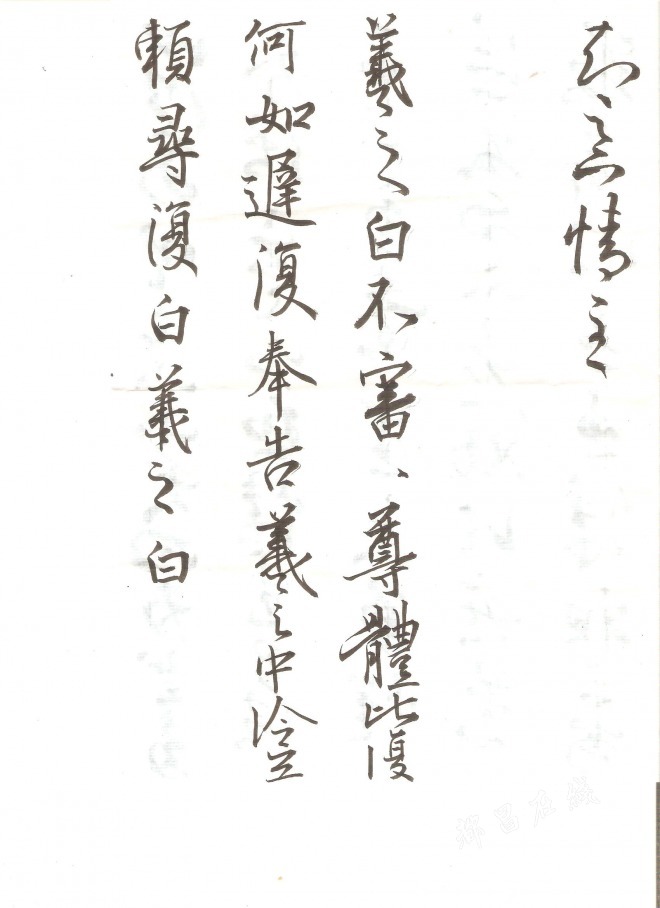 情
羲之白不審、尊體比復
何如遲復奉告羲之中冷無
賴尋復白羲之白